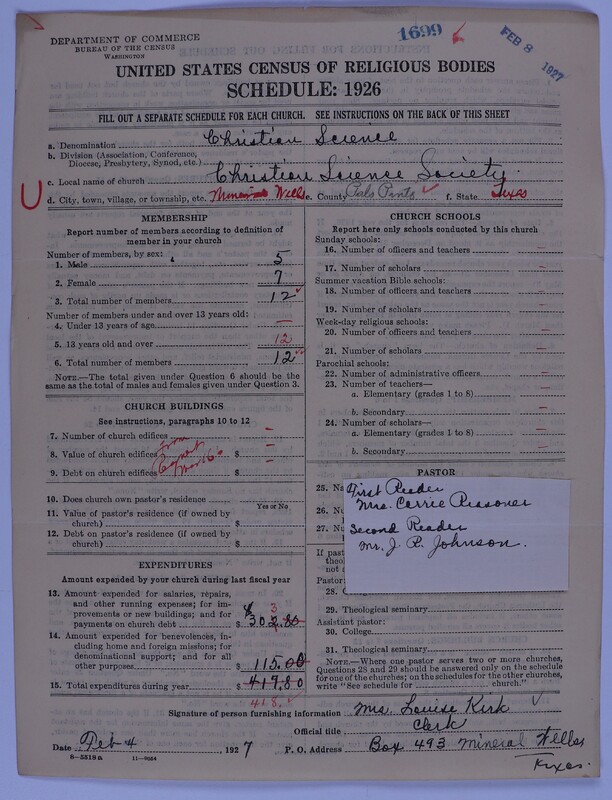 DEPARTMENT OF COMMERCE
BUREAU OF THE CENSUS
WASHINGTON
1699
FEB 8 1927
UNITED STATES CENSUS OF RELIGIOUS BODIES
SCHEDULE: 1926
FILL OUT A SEPARATE SCHEDULE FOR EACH CHURCH. SEE INSTRUCTIONS ON THE BACK OF THIS SHEET
a. Denomination Christian Science
b. Division (Association, Conference,
Diocese, Presbytery, Synod, etc.)
c. Local name of church Christian Science Society
d. City, town, village, or township, etc. Mineral Wells e. County Palo Pinto f. State Texas
MEMBERSHIP
Report number of members according to definition of
member in your church
Number of members, by sex:
1. Male 5
2. Female 7
3. Total number of members 12
Number of members under and over 13 years old:
4. Under 13 years of age —
5. 13 years old and over 12
6. Total number of members 12
NOTE.—The total given under Question 6 should be
same as the total of males and females given under Question 3.
CHURCH BUILDINGS
See instructions, paragraphs 10 to 12
7. Number of church edifices —
8. Value of church edifices $ —
9. Debt on church edifices $ —
from
Report
10. Does church own pastor's residence
Yes or No
11. Value of pastor's residence (if owned by
church) $
12. Debt on pastor's residence (if owned by
church) $
EXPENDITURES
Amount expended by your church during last fiscal year
13. Amount expended for salaries, repairs,
and other running expenses; for im-
provements or new buildings; and for
payments on church debt $ 302.80
3
14. Amount expended for benevolences, in-
cluding home and foreign missions; for
denominational support; and for all
other purposes 115.00
15. Total expenditures during year $ 417.80
418.
CHURCH SCHOOLS
Report here only schools conducted by this church
Sunday schools:
16. Number of officers and teachers —
17. Number of scholars —
Summer vacation Bible schools:
18. Number of officers and teachers —
19. Number of scholars —
Week-day religious schools:
20. Number of officers and teachers —
21. Number of scholars —
Parochial schools:
22. Number of administrative officers —
23. Number of teachers—
a. Elementary (grades 1 to 8) —
b. Secondary —
24. Number of scholars—
a. Elementary (grades 1 to 8) —
b. Secondary —
PASTOR
25. Na
26. Nu
27. Nu
First Reader
Mrs. Carrie Reasoner
Second Reader
Mr. J. R. Johnson.
If past
theol
not a
Pastor:
28. C
29. Theological seminary
Assistant pastor:
30. College
31. Theological seminary
NOTE.—Where one pastor serves two or more churches,
Questions 28 and 29 should be answered only on the schedule
for one of the churches; on the schedules for the other churches,
write "See schedule for church."
Signature of person furnishing information Mrs. Louise Kirk
Official title Clerk
Date Feb 4 1927 P. O. Address Box 493 Mineral Wells
Texas.
8—5518a 11—9684